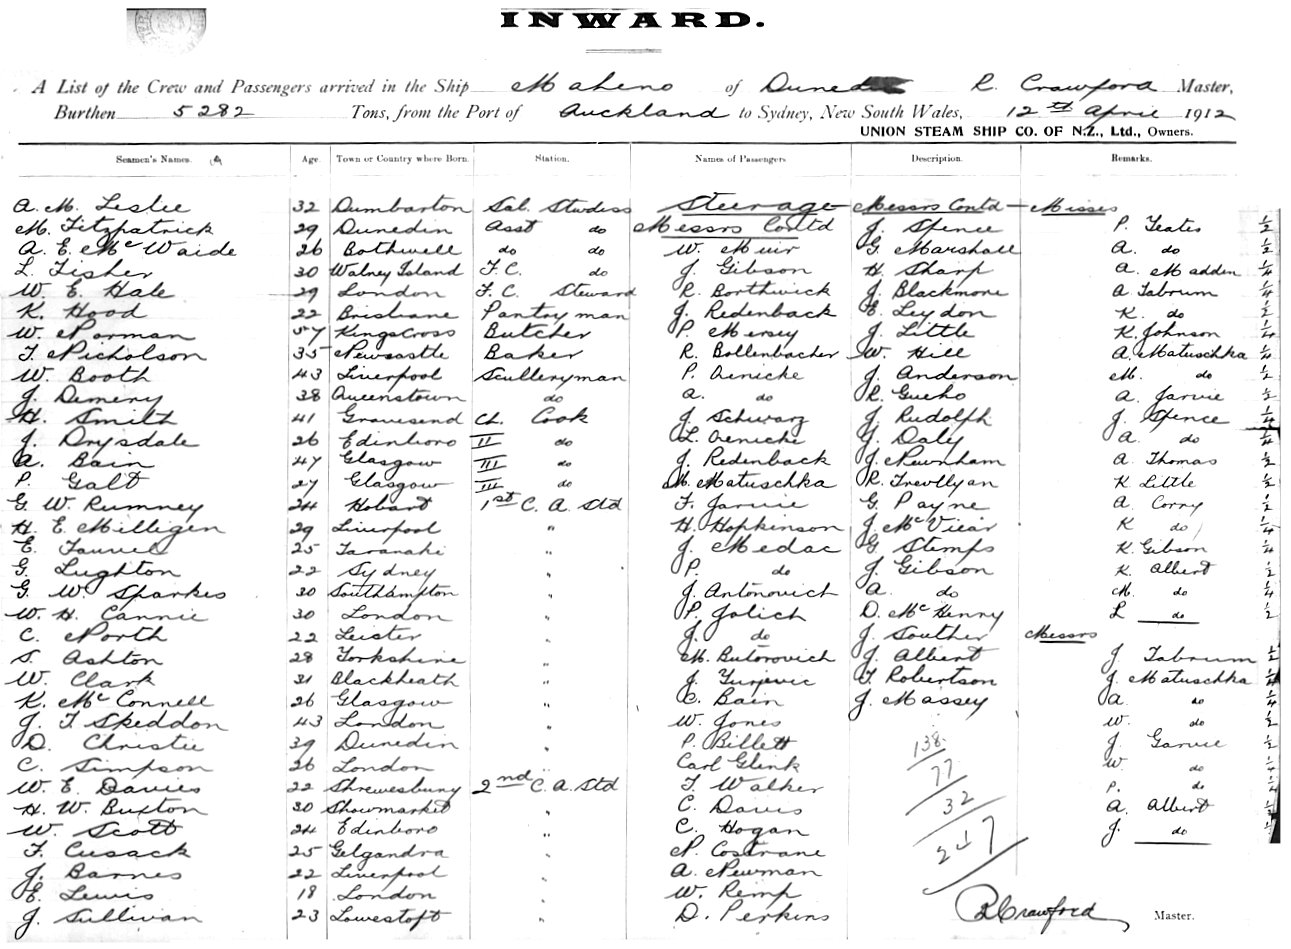 INWARD.
A List of the Crew and Passengers arrived in the Ship Maheno of Dunedin R. Crawford Master,
Burthen 5282 Tons, from the Port of Auckland to Sydney, New South Wales, 12th April 1912
UNION STEAM SHIP CO. OF N.Z., Ltd., Owners.
Seamen's Names. Age Town or Country where Born. Station. Names of Passengers Description. Remarks.
A. M. Leslie 32 Dumbarton Sal. Stwdess Steerage Messrs Contd Misses
M. Fitzpatrick 29 Dunedin Asst do Messrs Contd J. Spence P. Yeates 1/2
A. E. McWaide 26 Bothwell do do W. Muir G. Marshall A. do 1/2
L. Fisher 30 Walney Island F.C. do J. Gibson H. Sharp A. Madden 1/4
W. E. Hale 29 London F.C. Steward R. Borthwick J. Blackmore A Tabrum 1/4
K. Hood 22 Brisbane Pantryman J. Redenback E. Leydon K. do 1/2
W. Norman 57 Kings Cross Butcher P. Mersey J. Little K. Johnson 1/4
T. Nicholson 35 Newcastle Baker R. Bollenbacher W. Hill A. Matuschka 1/4
W. Booth 43 Liverpool Sculleryman P. Aenicke J. Anderson M. do 1/2
J. Demeny 38 Queenstown do A. do R. Gueho A Jarvie 1/2
H. Smith 41 Gravesend Ch. Cook J. Schwarz J. Rudolph J. Spence 1/4
J. Drysdale 26 Edinboro II do L. Aenicke J. Daly A do 1/4
A. Bain 47 Glasgow III do J. Redenback J. Newnham A Thomas 1/2
P. Galt 27 Glasgow III do M. Matuschka R. Trevllyan K Little 1/2
G. W. Rumney 24 Hobart 1st C. A. Std F. Jarvie G. Payne A. Corry 1/2
H. E. Milligen 29 Liverpool " H. Hopkinson J. McVicar K do 1/4
E. 25 Taranaki " J. Medac G. Stemps K. Gibson 1/4
G. Lughton 22 Sydney " P. do J. Gibson K. Albert 1/2
G. W. Sparkes 30 Southampton " J. Antonovich A. do M. do 1/4
W. H. Cannie 30 London " P. Jolich D. McHenry L do 1/2
C. North 22 Leister " J. do J. Souther Messrs
S. Ashton 28 Yorkshire " M. Butorovich J. Albert J. Tabrum 1/2
W. Clark 31 Blackheath " J. Jurjevic T. Robertson J. Matuschka 1/4
K. McConnell 26 Glasgow " C. Bain J. Massey A do 1/4
J. T. Skeddon 43 London " W. Jones W. do 1/2
D. Christie 39 Dunedin " P. Billett 138 J. Garvie 1/2
C. Simpson 26 London " Carl Glink 77 W do 1/4
W. E. Davies 22 Shrewesbury 2nd C. A. Std T. Walker P. do 1/4
H. W. Buxton 30 Showmarket " C. Davis 32 A. Albert 1/2
W. Scott 24 Edinboro " C. Hogan 247 J. do 1/4
F. Cusack 25 Gelgandra " N. Costrane
J. Barnes 22 Liverpool " A. Newman
E. Lewis 18 London " W. Remp
J. Sullivan 23 Lowestoft " D. Perkins R Crawford Master.